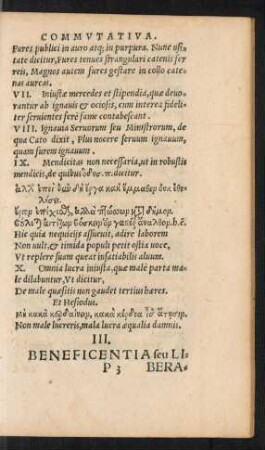 COMMVTATIVA.
Fures publici in auro atq; in purpura. Nunc usi-
tate dicitur, Fures tenues strangulari catenis fer
reis, Magnos autem fures gestare in collo cate-
nas aureas.
VII. Iniustæ mercedes et stipendia, quæ deuo-
rantur ab ignauis et ociosis, cum interea fideli-
ter seruientes ferè fame contabescant.
VIII. Ignauia Seruorum seu Ministrorum, de
qua Cato dixit, Plus nocere seruum ignauum,
quam furem ignauum.
IX. Mendicitas non necessaria, ut in robustis
mendicis, de quibus dicitur.
ἀλλ᾽ ἐπεὶ οὖν δὴ ἔργα κακ᾽ ἔμμαθεν οὐκ ἐθε-
λήσει
βόσκειν ἣν γαστέρ᾽ ἄναλτον. h.e.
Hic quia nequicijs assueuit, adire laborem
Non uult, et timida populi petit ostia uoce,
Vt replere suam queat insatiabilis aluum.
X. Omnia lucra iniusta, quæ malè parta ma-
lè dilabuntur, Vt dicitur,
De malè quæsitis non gaudet tertius hæres.
Et Hesiodus.
Μὴ κακὰ κερδαίνειν, κακὰ κέρδεα ἶσ᾽ ἄτῃσιν.
Non malè lucreris, mala lucra æqualia damnis.
III.
BENEFICENTIA seu LI-
P 3 BERA-